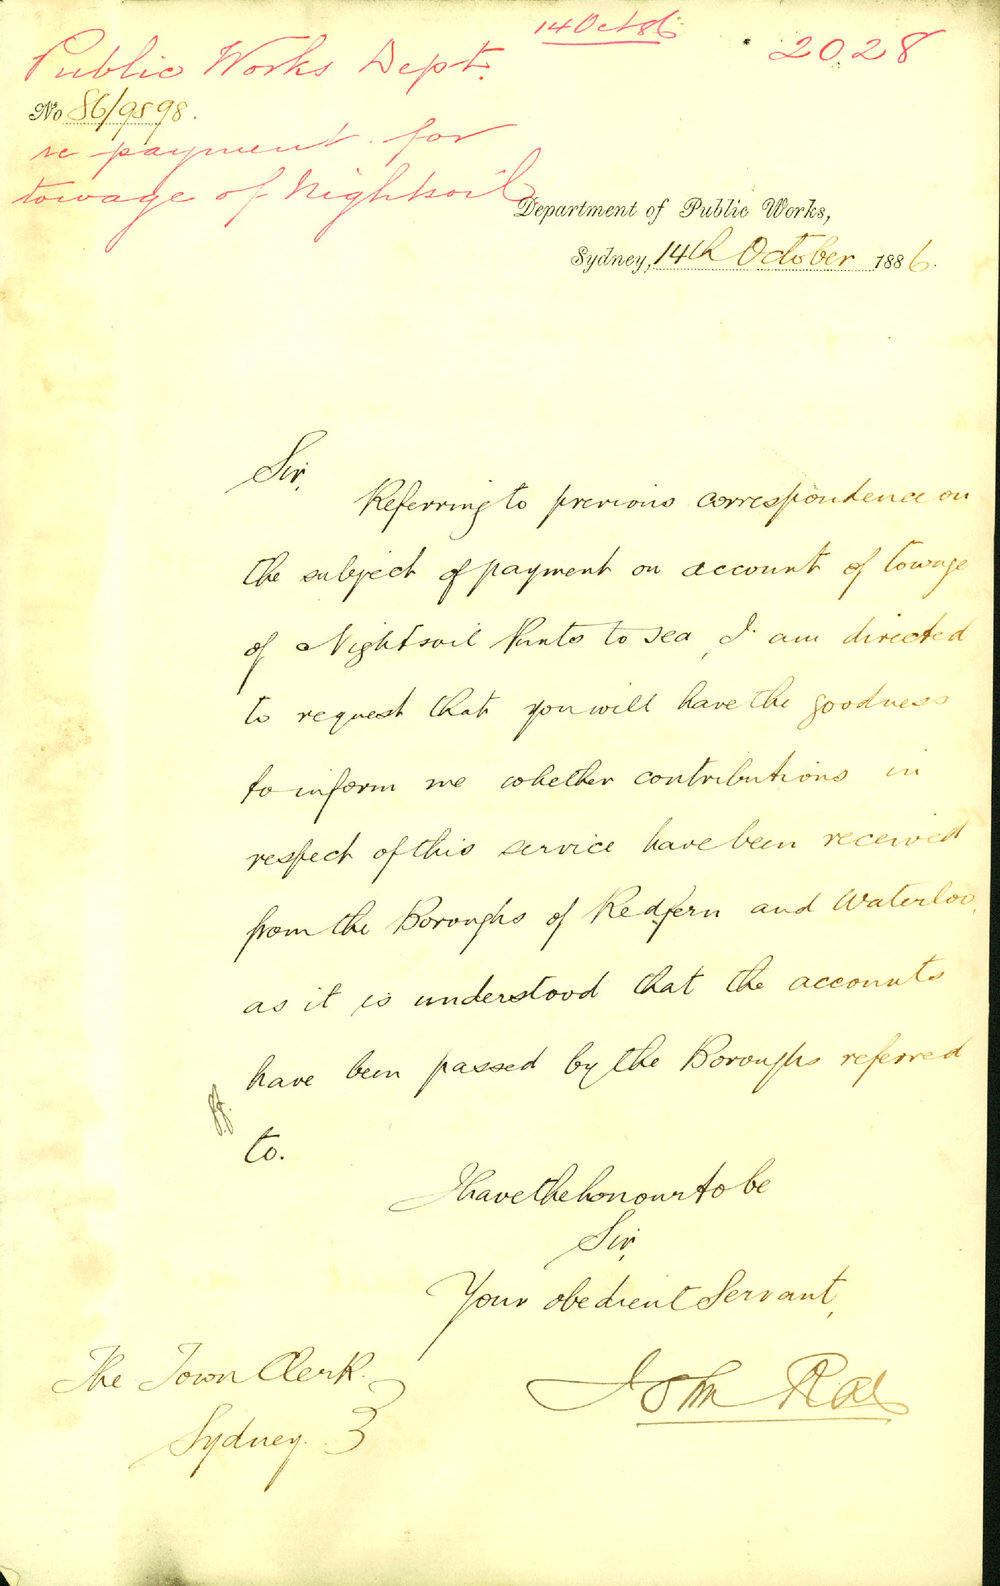 14 Oct 86
2028
Public Works Dept.
No 86/9898.
re payment for
towage of Nightsoil
Department of Public Works,
Sydney, 14th October 1886.
Sir,
Referring to previous correspondence on
the subject of payment on account of towage
of Nightsoil Punts to sea, I am directed
to request that you will have the goodness
to inform me whether contributions in
respect of this service have been received
from the Boroughs of Redfern and Waterloo,
as it is understood that the accounts
have been passed by the Boroughs referred
to.
I have the honour to be
Sir,
Your obedient Servant,
John Rae
The Town Clerk.
Sydney.